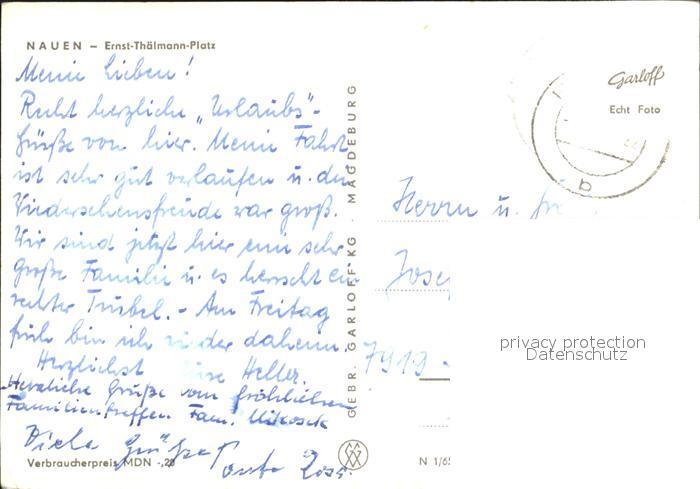 NAUEN – Ernst-Thälmann-Platz
Meine Lieben!
Recht herzliche „Urlaubs"-
Grüße von hier. Meine Fahrt
ist sehr gut verlaufen u. die
Wiedersehensfreude war groß.
Wir sind jetzt hier eine sehr
große Familie u. es herrscht ein
rechter Trubel. - Am Freitag
früh bin ich wieder daheim.
Herzlichst Heller.
Herzliche Grüße vom fröhlichen
Familientreffen. Fam.
Viele Grüße
Verbraucherpreis MDN -,20
GEBR. GARLOFF KG · MAGDEBURG
Garloff
Echt Foto
Herrn u.
7919
N 1/65
privacy protection
Datenschutz